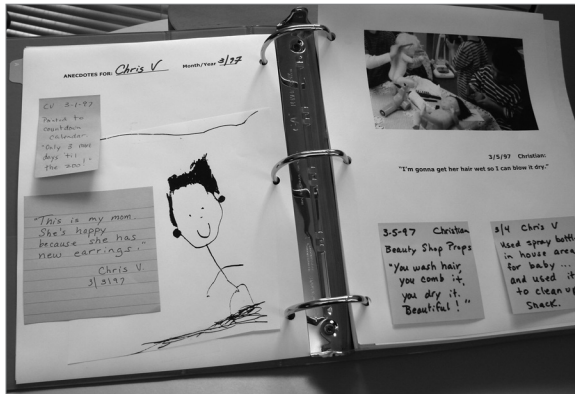 ANECDOTES FOR: Chris V Month/Year 3/97
CV 3-1-97
Pointed to
countdown
calendar.
"Only 3 more
days 'til
the zoo!"
"This is my mom.
She's happy
because she has
new earrings."
Chris V.
3/3/97
3/5/97 Christian:
"I'm gonna get her hair wet so I can blow it dry."
3-5-97 Christian
Beauty Shop Props
"You wash hair,
you comb it,
you dry it.
Beautiful!"
3/4 Chris V
Used spray bottl
in house area
for baby ...
and used it
to clean up
snack.